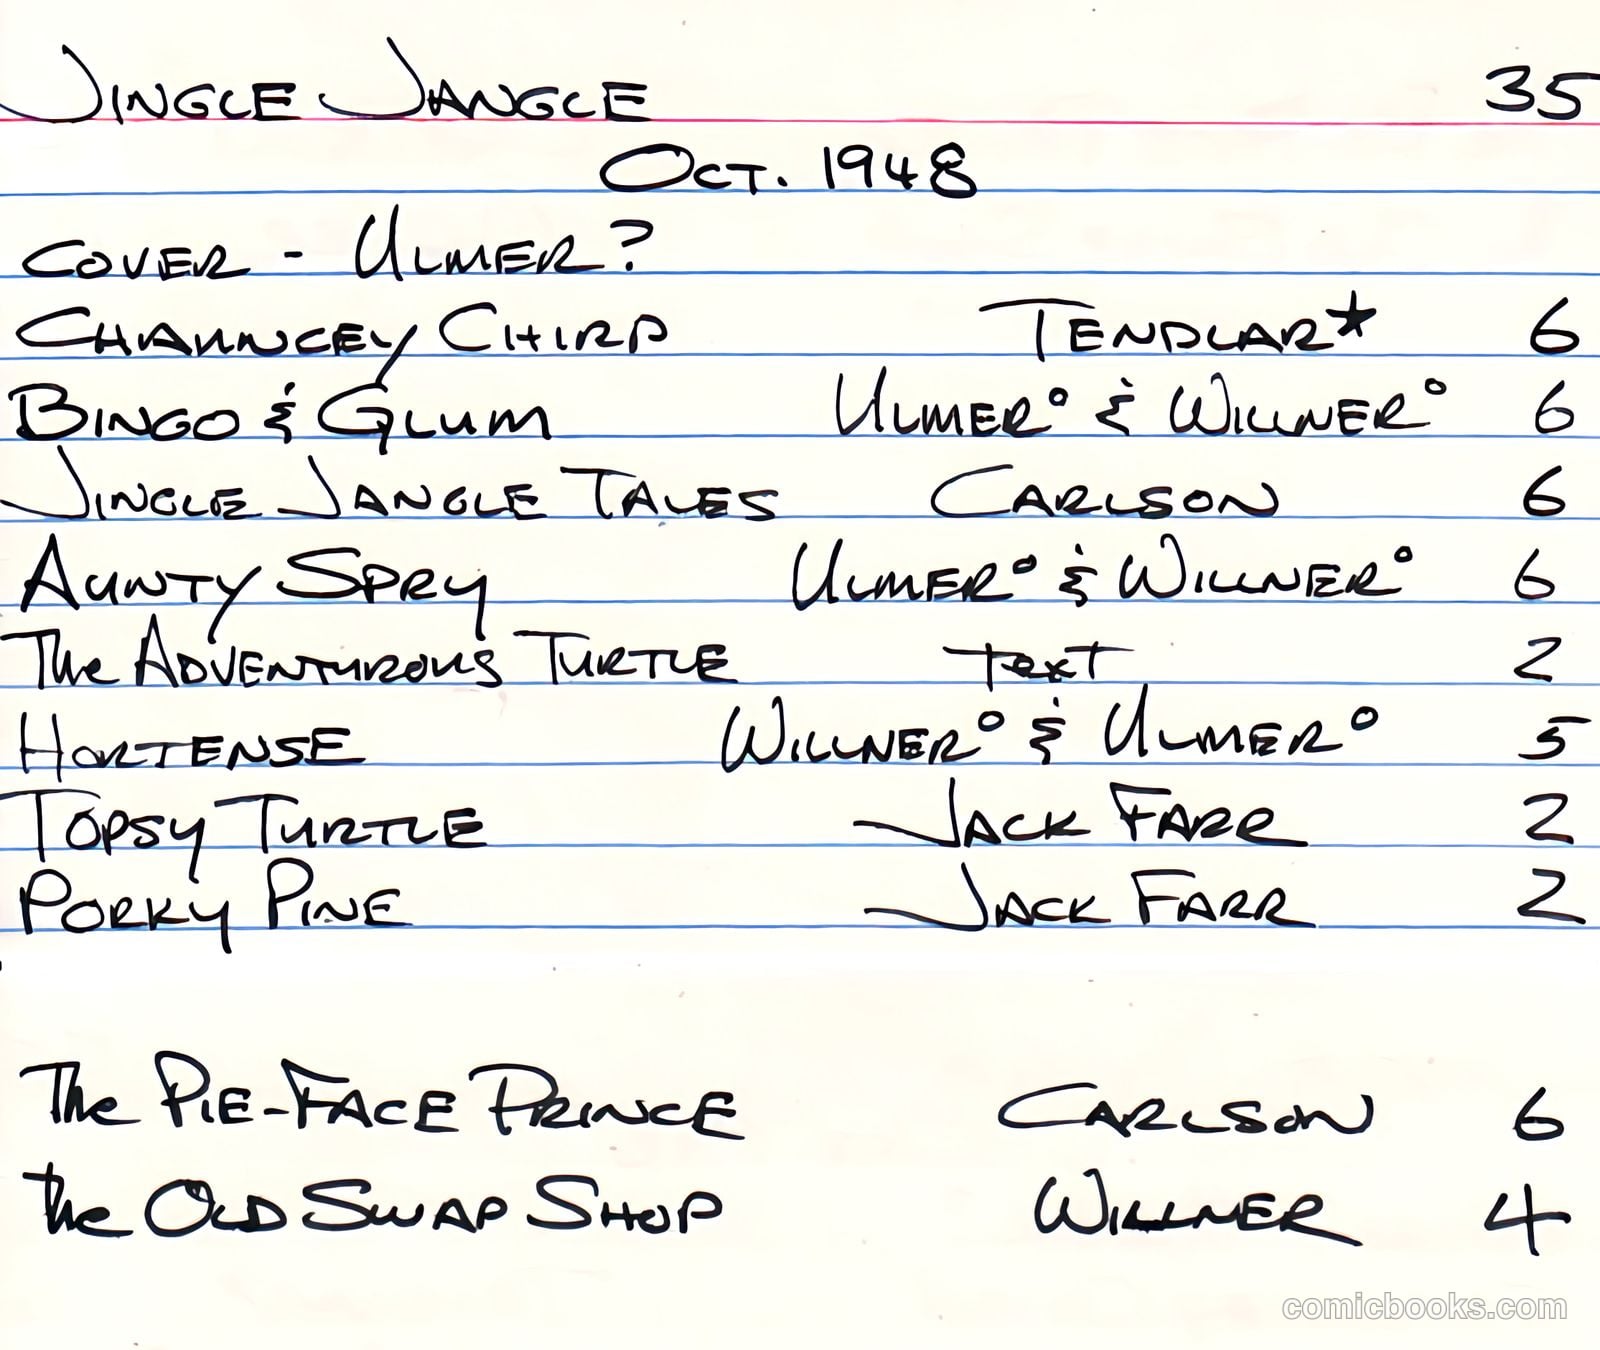 JINGLE JANGLE 35
OCT. 1948
COVER - ULMER?
CHAUNCEY CHIRP TENDLAR★ 6
BINGO & GLUM ULMER° & WILLNER° 6
JINGLE JANGLE TALES CARLSON 6
AUNTY SPRY ULMER° & WILLNER° 6
The ADVENTUROUS TURTLE text 2
HORTENSE WILLNER° & ULMER° 5
TOPSY TURTLE JACK FARR 2
PORKY PINE JACK FARR 2
The PIE-FACE PRINCE CARLSON 6
the OLD SWAP SHOP WILLNER 4
comicbooks.com